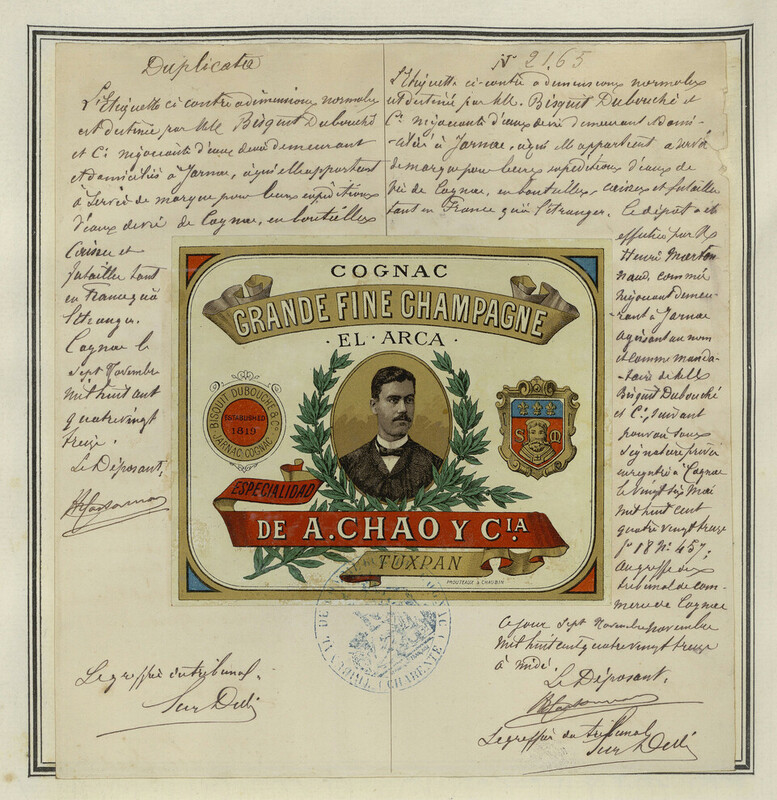 Duplicata
L'Etiquette ci contre a dimensions normales
est destinée par MM. Bisquit Dubouché
et Cie négociants d'eaux de vie demeurant
et domiciliés à Jarnac, à qui elle appartient
à servir de marque pour leurs expéditions
d'eaux de vie de Cognac, en bouteilles
Caisses et
futailles tant
en France qu'à
l'étranger.
Cognac le
sept Novembre
mil huit cent
quatre vingt
treize.
Le Déposant,
Le greffier du tribunal.
No 2165
L'Etiquette ci-contre a dimensions normales
est destinée par MM. Bisquit Dubouché et
Cie négociants d'eaux de vie demeurant et domi-
ciliés à Jarnac, à qui elle appartient à servir
de marque pour leurs expéditions d'eaux de
vie de Cognac, en bouteilles, caisses et futailles
tant en France qu'à l'étranger. Le dépôt a été
effectué par M
Henri Marton
naud, commis
négociant demeu-
rant à Jarnac
agissant au nom
et comme manda-
taire de MM
Bisquit Dubouché
et Cie, suivant
pouvoir sous
signature privée
enregistré à Cognac
le vingt six Mai
mil huit cent
quatre vingt treize
fo 18 No 457,
au greffe du
tribunal de com-
merce de Cognac
ce jour sept Novembre
mil huit cent quatre vingt treize
à midi.
Le Déposant.
Le greffier du tribunal
COGNAC
GRANDE FINE CHAMPAGNE
· EL · ARCA ·
BISQUIT DUBOUCHÉ & Co
ESTABLISHED
1819
JARNAC COGNAC
S M
ESPECIALIDAD
DE A. CHAO Y CIA.
TUXPAN
MOUTEAUX & CHAUDIN